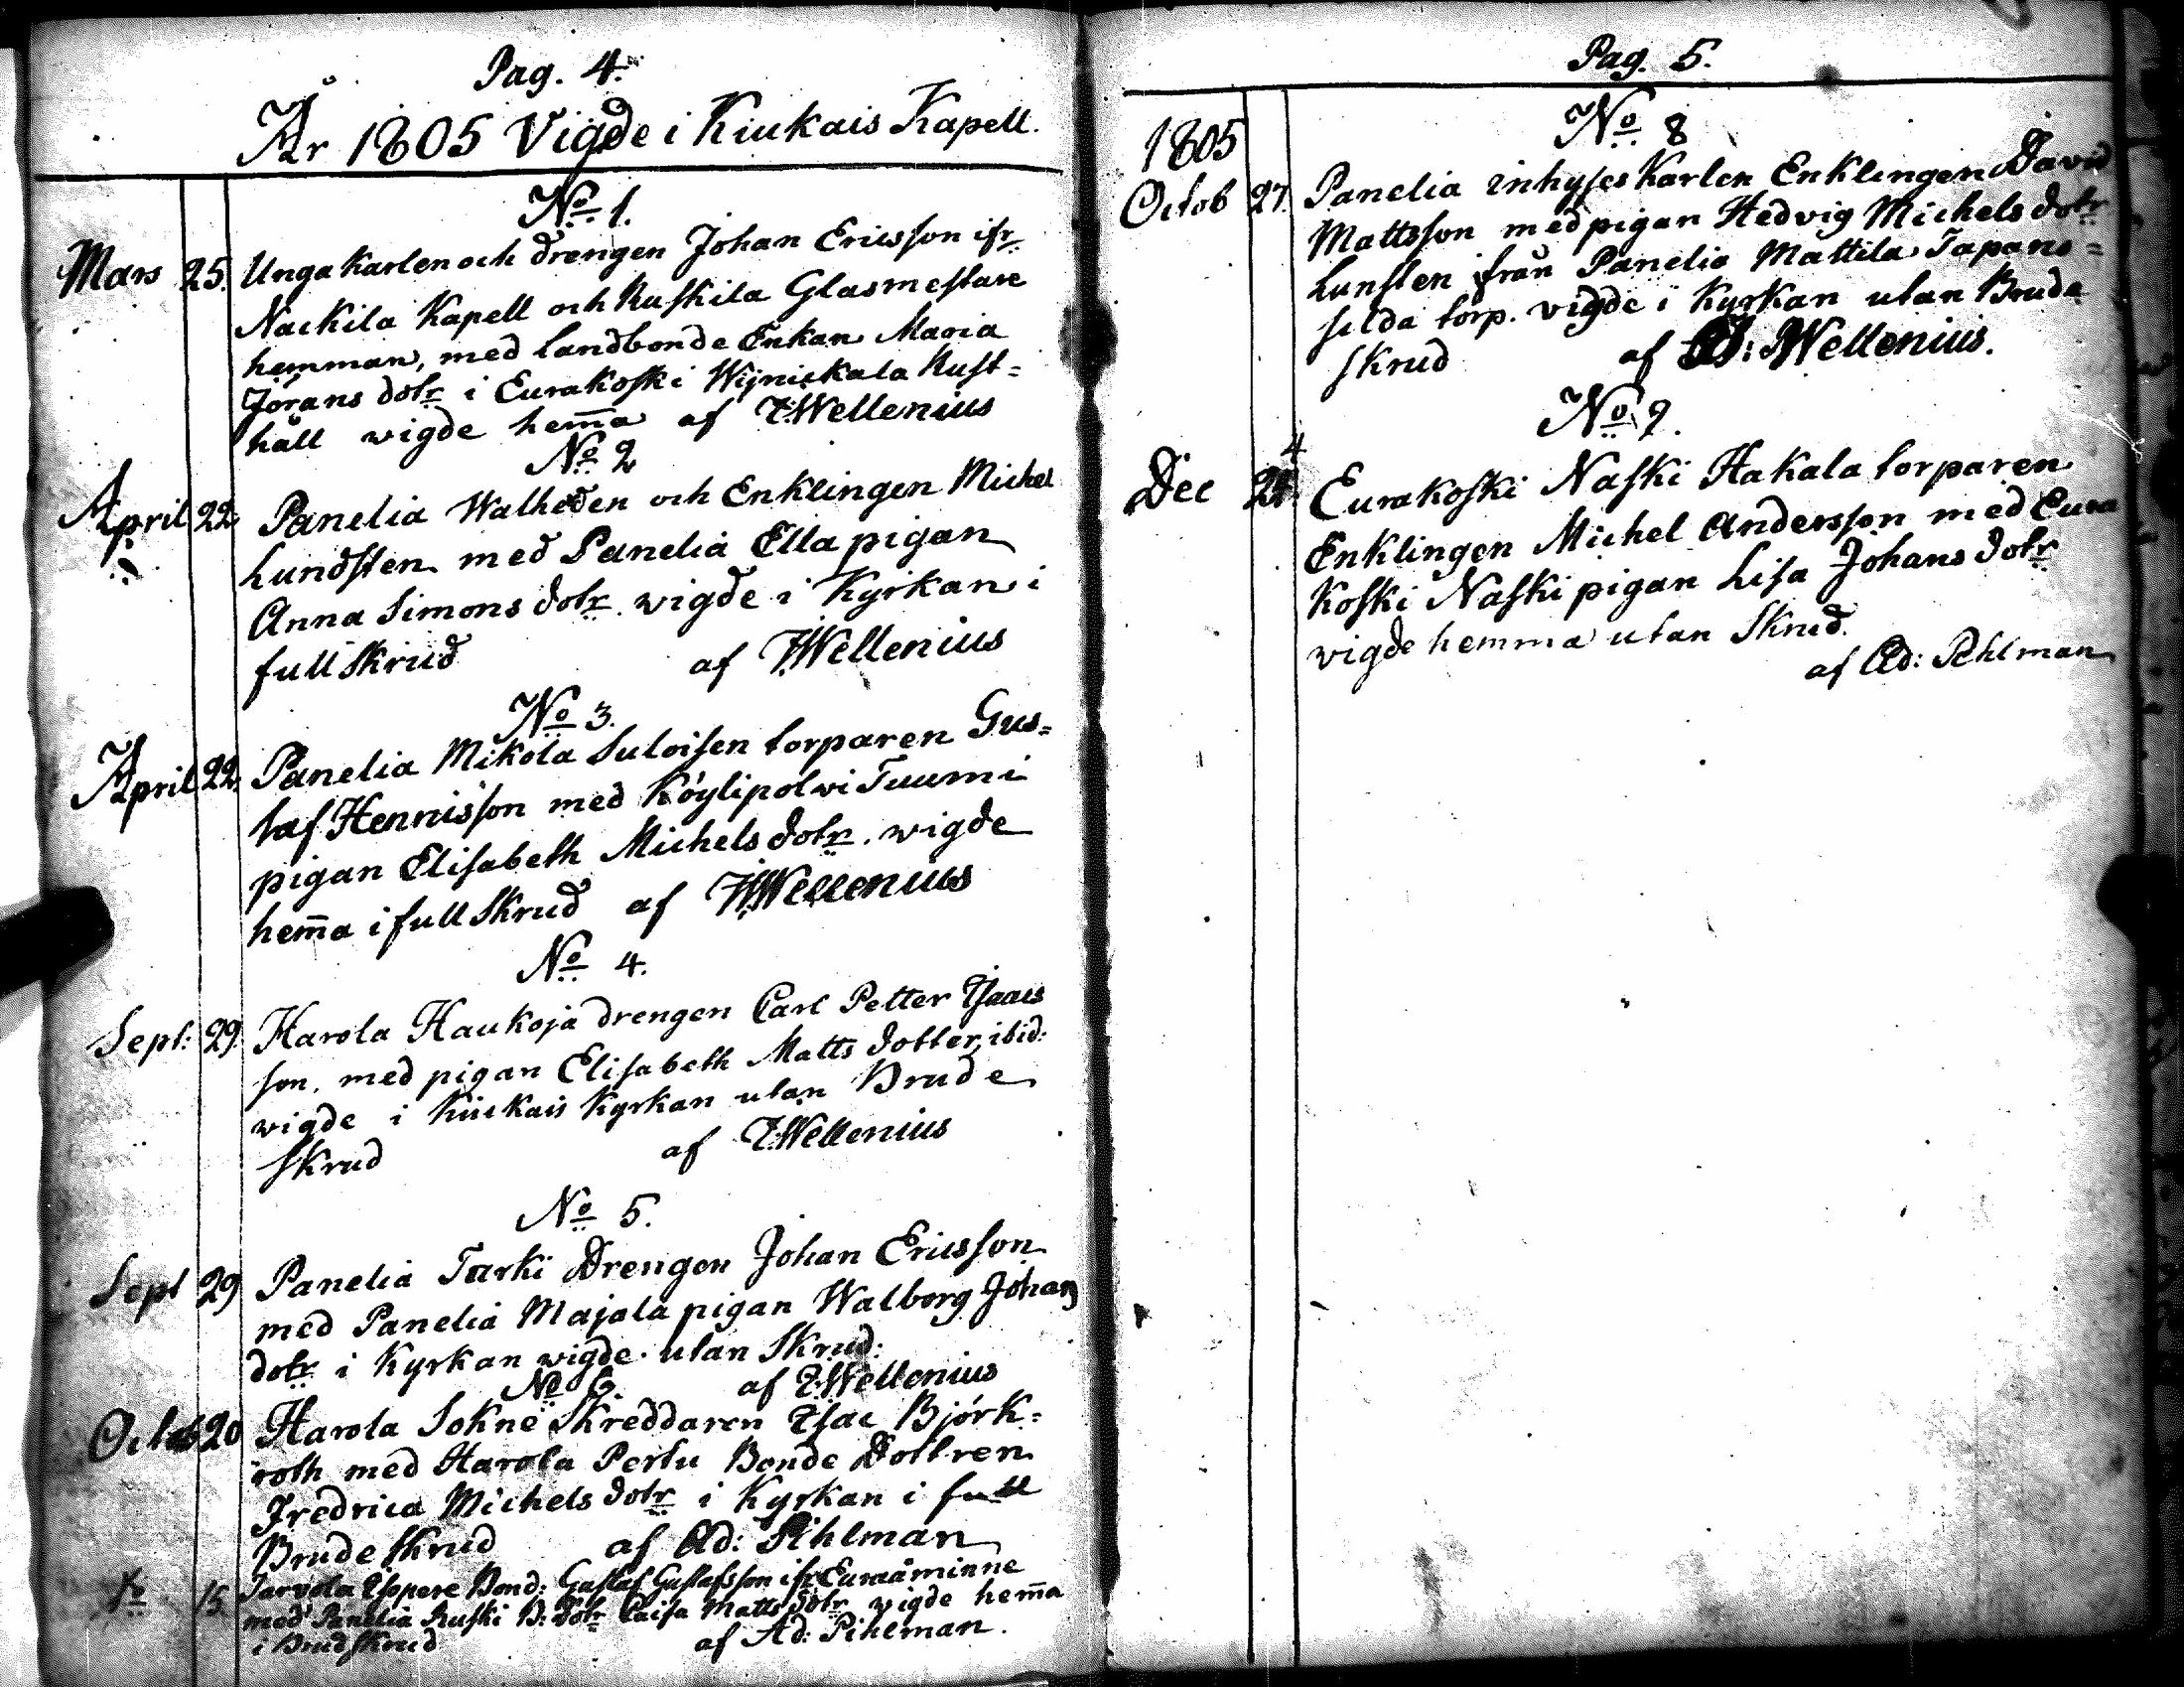 Pag. 4.
År 1805 Vigde i Kiukais Kapell.
No 1.
Mars 25. Unga Karlen och drengen Johan Ericsson ifr
Nackila Kapell och Ruskila Glasmestare
hemman, med landbonde Enkan Maria
Jörans dotr i Eurakoski Wijnickala Rust=
håll wigde hem̄a af I:Wellenius
No 2
April 22. Panelia Walheden och Enklingen Michel
Lundsten med Panelia Ella pigan
Anna Simons dotr wigde i Kyrkan i
full Skrud af I:Wellenius
No 3.
April 22. Panelia Mikola Suloisen torparen Gus=
taf Hennisson med Köylipolwi Tuumi
pigan Elisabeth Michels dotr. wigde
hem̄a i full Skrud af I:Wellenius
No 4.
Sept: 29. Harola Haukoja drengen Carl Petter Isaacs
son, med pigan Elisabeth Matts dotter, ibid:
wigde i Kiukais Kyrkan utan Brude
Skrud af I:Wellenius
No 5.
Sept 29 Panelia Tarki Drengen Johan Ericsson
med Panelia Majala pigan Walborg Johans
dotr i Kyrkan wigde utan Skrud:
No 6. af I:Wellenius
Octob 20 Harola Sokne Skreddaren Isac Björk=
roth med Harola Pertu Bonde Dottren
Fredrica Michels dotr i Kyrkan i full
Brude Skrud af Ad: Pihlman
15. Jarvola Isopere Bond: Gustaf Gustafsson ifr Euraåminne
med Panelia Ruski B: dotr Caisa Matts dotr vigde hem̄a
i Brudskrud af Ad: Pihlman.
Pag. 5.
1805
No 8
Octob 27. Panelia inhyses Karlen Enklingen David
Mattsson med pigan Hedvig Michels dotr
Lunsten från Panelia Mattila Tapans=
silda torp. vigde i Kyrkan utan Brude
Skrud af I:Wellenius.
No 9.
Dec 24. Eurakoski Naski Hakala torparen
Enklingen Michel Andersson med Eura
Koski Naski pigan Lisa Johans dotr
vigde hemma utan Skrud.
af Ad: Pihlman